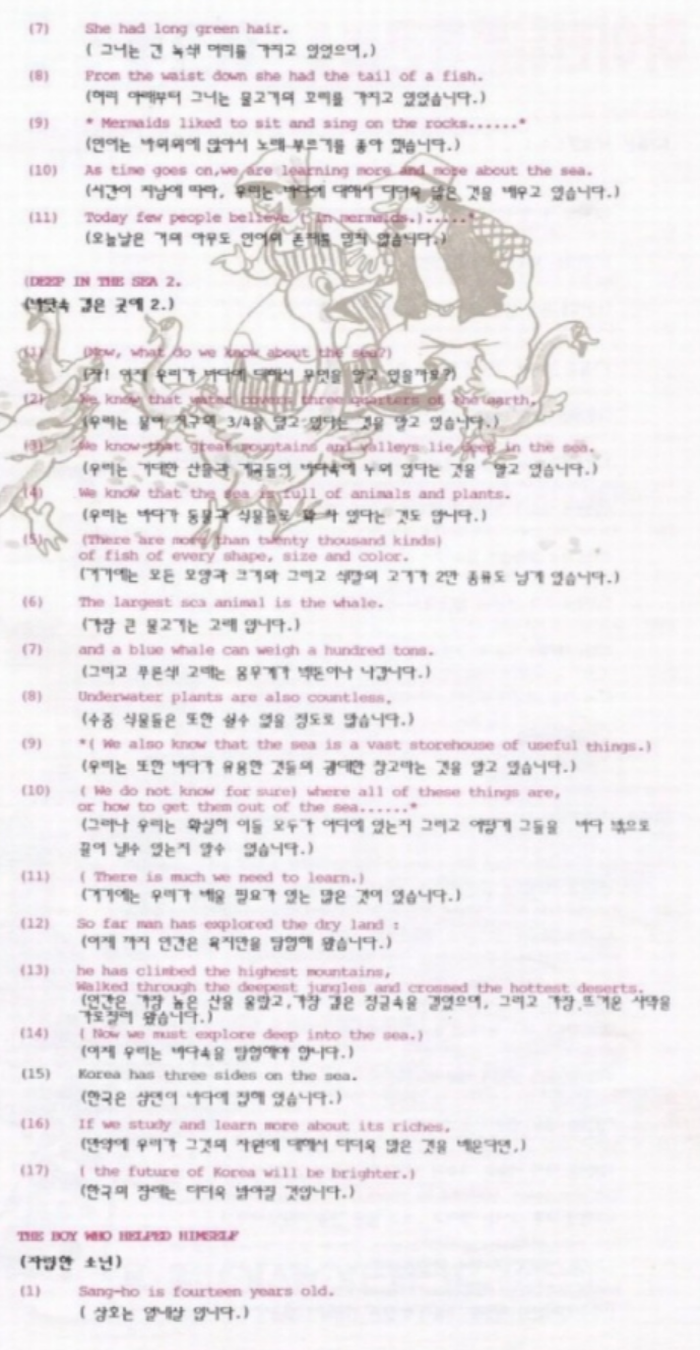 (7) She had long green hair.
( 그녀는 긴 녹색 머리를 가지고 있었으며,)
(8) From the waist down she had the tail of a fish.
(허리 아래부터 그녀는 물고기의 꼬리를 가지고 있었습니다.)
(9) * Mermaids liked to sit and sing on the rocks......*
(인어는 바위위에 앉아서 노래 부르기를 좋아 했습니다.)
(10) As time goes on,we are learning more and more about the sea.
(시간이 지남에 따라, 우리는 바다에 대해서 더더욱 많은 것을 배우고 있습니다.)
(11) Today few people believe ( in mermaids.).....*
(오늘날은 거의 아무도 인어의 존재를 믿지 않습니다.)
(DEEP IN THE SEA 2.
(바닷속 깊은 곳에 2.)
(1) (Now, what do we know about the sea?)
(자! 이제 우리가 바다에 대해서 무엇을 알고 있을까요?)
(2) We know that water covers three quarters of the earth.
(우리는 물이 지구의 3/4을 덮고 있다는 것을 알고 있습니다.)
(3) We know that great mountains and valleys lie deep in the sea.
(우리는 거대한 산들과 계곡들이 바다속에 누워 있다는 것을 알고 있습니다.)
(4) We know that the sea is full of animals and plants.
(우리는 바다가 동물과 식물들로 꽉 차 있다는 것도 압니다.)
(5) (There are more than twenty thousand kinds)
of fish of every shape, size and color.
(거기에는 모든 모양과 크기와 그리고 색깔의 고기가 2만 종류도 넘게 있습니다.)
(6) The largest sea animal is the whale.
(가장 큰 물고기는 고래 입니다.)
(7) and a blue whale can weigh a hundred tons.
(그리고 푸른색 고래는 몸무게가 백톤이나 나갑니다.)
(8) Underwater plants are also countless,
(수중 식물들은 또한 셀수 없을 정도로 많습니다.)
(9) *( We also know that the sea is a vast storehouse of useful things.)
(우리는 또한 바다가 유용한 것들의 광대한 창고라는 것을 알고 있습니다.)
(10) ( We do not know for sure) where all of these things are,
or how to get them out of the sea......*
(그러나 우리는 확실히 이들 모두가 어디에 있는지 그리고 어떻게 그들을 바다 밖으로
끌어 낼수 있는지 알수 없습니다.)
(11) ( There is much we need to learn.)
(거기에는 우리가 배울 필요가 있는 많은 것이 있습니다.)
(12) So far man has explored the dry land :
(이제 까지 인간은 육지만을 탐험해 왔습니다.)
(13) he has climbed the highest mountains,
Walked through the deepest jungles and crossed the hottest deserts.
(인간은 가장 높은 산을 올랐고,가장 깊은 정글속을 걸었으며, 그리고 가장 뜨거운 사막을
가로질러 왔습니다.)
(14) ( Now we must explore deep into the sea.)
(이제 우리는 바다속을 탐험해야 합니다.)
(15) Korea has three sides on the sea.
(한국은 삼면이 바다에 접해 있습니다.)
(16) If we study and learn more about its riches,
(만약에 우리가 그것의 자원에 대해서 더더욱 많은 것을 배운다면,)
(17) ( the future of Korea will be brighter.)
(한국의 장래는 더더욱 밝아질 것입니다.)
THE BOY WHO HELPED HIMSELF
(자립한 소년)
(1) Sang-ho is fourteen years old.
( 상호는 열네살 입니다.)